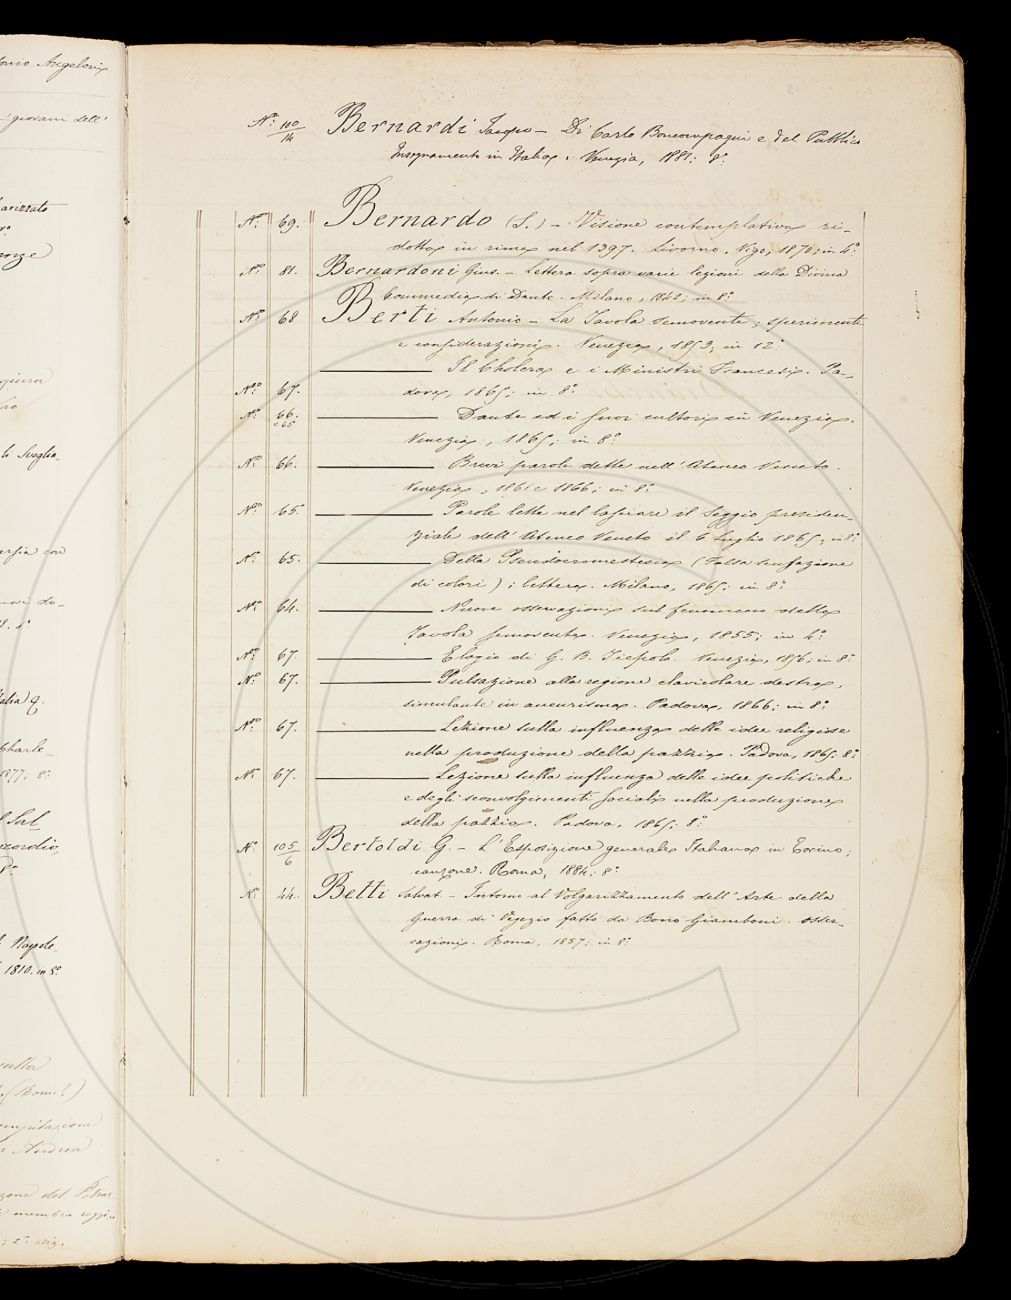 onio Angeloni
giovani dell'
arizzato
enze
giura
li Sveglia
ersia con
Italia q.
Charle
1877, 8°
l Sal
Napole
1810. in 8°
(Rom.)
Andrea
zone del Petrar
; 2a ediz.
N.° 100/14 Bernardi Jacopo – Di Carlo Boncompagni e del Pubblico
Insegnamento in Italia. Venezia, 1881; 8°
N.° 69. Bernardo (S.) – Visione contemplativa ri-
dotta in rima nel 1397. Livorno, Vigo, 1870; in 4°
N.° 81. Bernardoni Gius. – Lettera sopra varie lezioni della Divina
Commedia di Dante. Milano, 1842; in 8°
N.° 68 Berti Antonio – La Tavola semovente; sperimenti
e considerazioni. Venezia, 1853; in 12°
——— Il Cholera e i Ministri Francesi. Pa-
N.° 67. dova, 1865; in 8°
N.° 66. e 65 ——— Dante ed i suoi cultori in Venezia.
Venezia, 1865; in 8°
N.° 66. ——— Brevi parole dette nell'Ateneo Veneto.
Venezia, 1861 e 1866; in 8°
N.° 65. ——— Parole lette nel lasciare il Seggio presiden-
ziale dell'Ateneo Veneto il 6 Luglio 1865; in 8°
N.° 65. ——— Della Pseudocromestesia (Falsa sensazione
di colori); lettera. Milano, 1865; in 8°
N.° 64. ——— Nuove osservazioni sul fenomeno della
Tavola semovente. Venezia, 1855; in 4°
N.° 67. ——— Elogio di G. B. Tiepolo. Venezia, 1856; in 8°
N.° 67. ——— Pulsazione alla regione clavicolare destra,
simulante un aneurisma. Padova, 1866; in 8°
N.° 67. ——— Lezione sulla influenza delle idee religiose
nella produzione della pazzia. Padova, 1865; 8°
N.° 67. ——— Lezione sulla influenza delle idee politiche
e degli sconvolgimenti sociali nella produzione
della pazzia. Padova, 1865; 8°
N.° 105/6 Bertoldi G. – L'Esposizione generale Italiana in Torino;
canzone. Roma, 1884; 8°
N.° 44. Betti Salvat. – Intorno al Volgarizzamento dell'Arte della
Guerra di Vegezio fatto da Bono Giamboni. Osser-
vazioni. Roma, 1857; in 8°